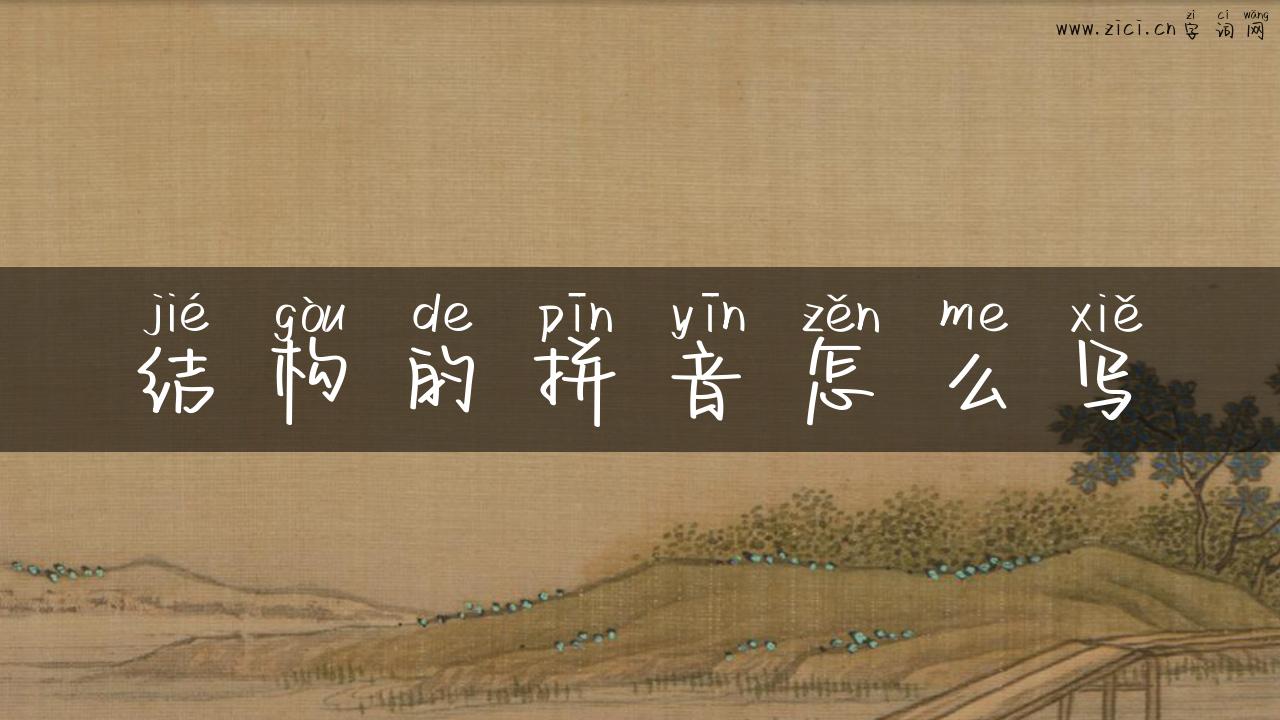 zì cí wǎng
www.zici.cn 字词网
jié gòu de pīn yīn zěn me xiě
结构的拼音怎么写